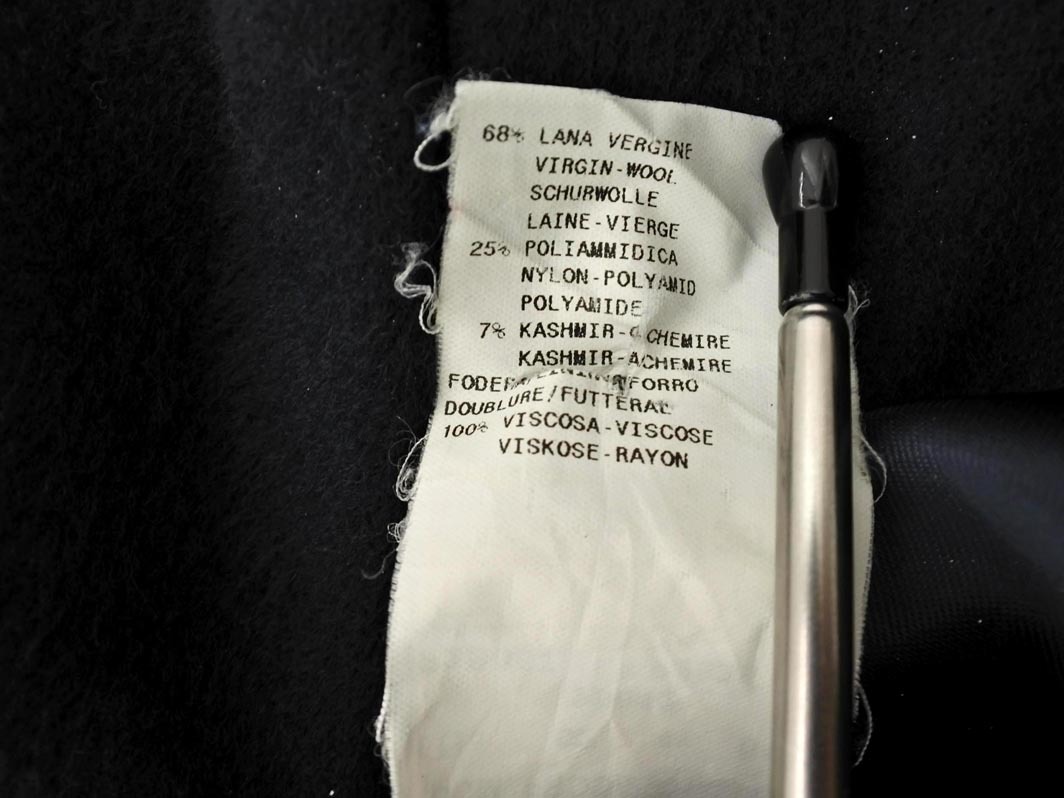 68% LANA VERGINE
VIRGIN-WOOL
SCHURWOLLE
LAINE-VIERGE
25% POLIAMMIDICA
NYLON-POLYAMID
POLYAMIDE
7% KASHMIR-CACHEMIRE
KASHMIR-ACHEMIRE
FODERA/LINING/FORRO
DOUBLURE/FUTTERAL
100% VISCOSA-VISCOSE
VISKOSE-RAYON